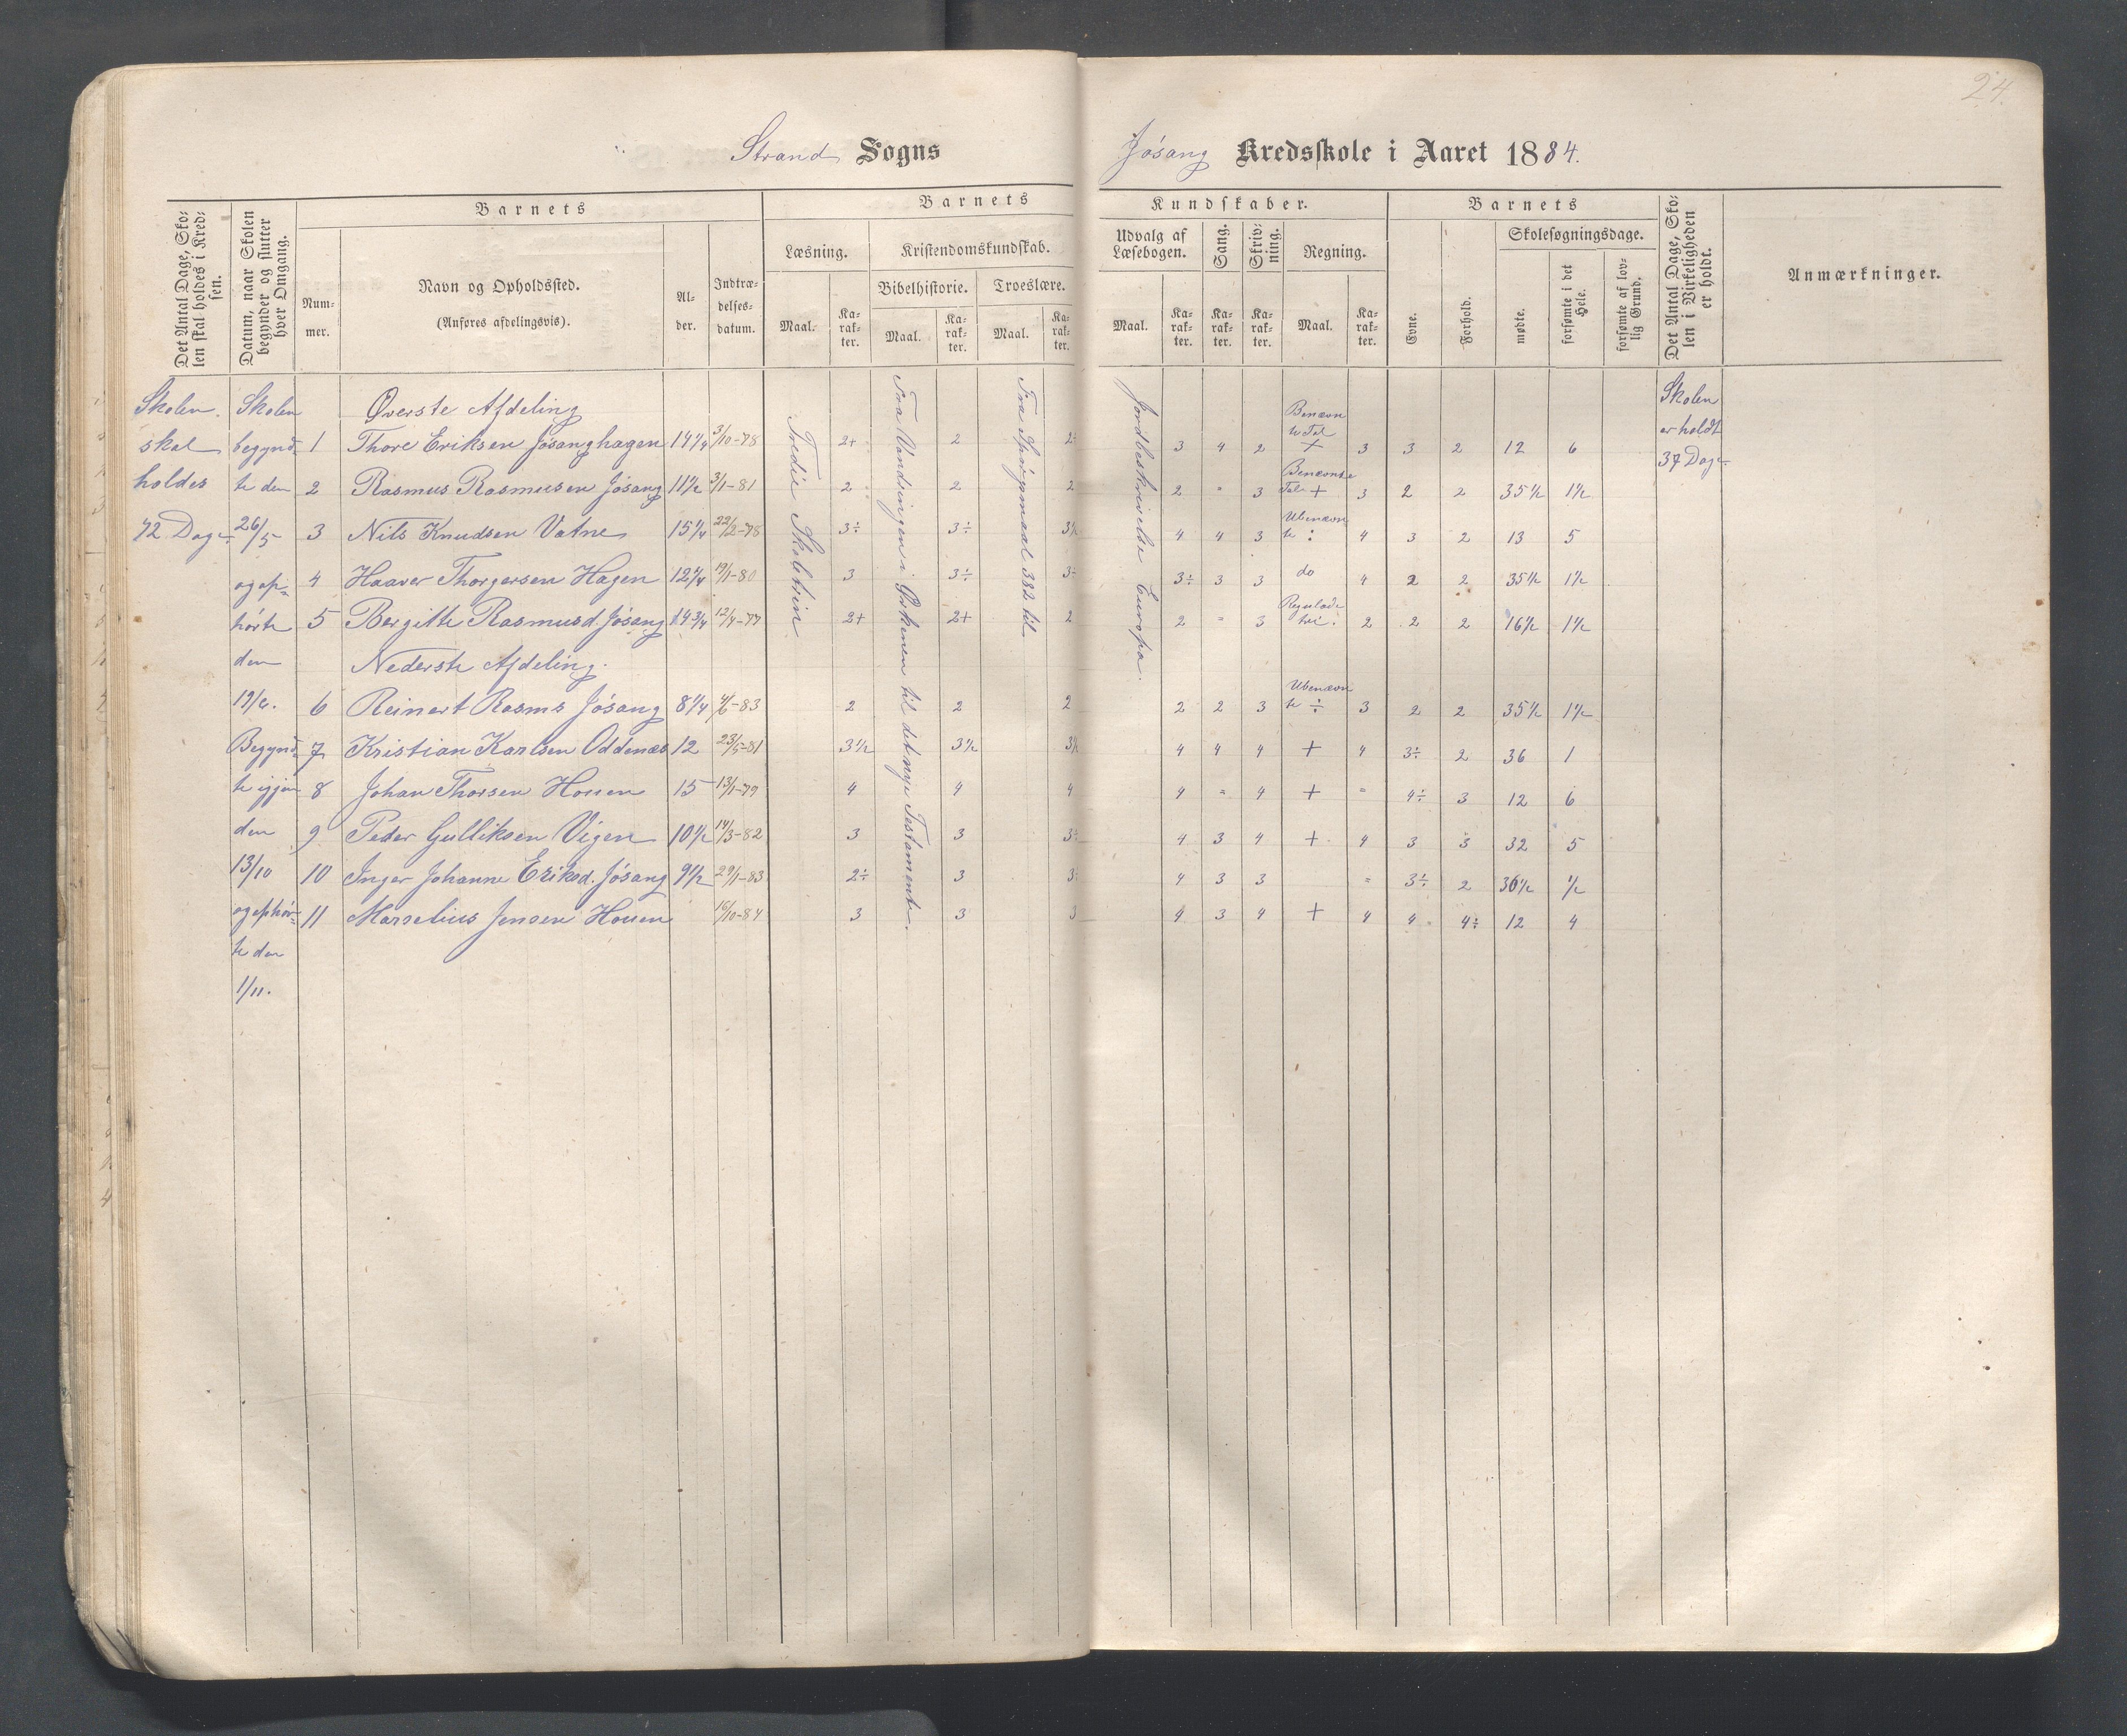 24.
Strand Sogns
Jósang Kredsskole i Aaret 1884.
Det Antal Dage, Skolen skal holdes i Kredsen.
Datum, naar Skolen begynder og slutter hver Omgang.
Barnets
Nummer.
Navn og Opholdssted.
(Anføres afdelingsvis).
Alder.
Indtrædelsesdatum.
Barnets
Læsning.
Maal.
Karakter.
Kristendomskundskab.
Bibelhistorie.
Maal.
Karakter.
Troeslære.
Maal.
Karakter.
Kundskaber.
Udvalg af Læsebogen.
Maal.
Karakter.
Sang.
Karakter.
Skrivning.
Karakter.
Regning.
Maal.
Karakter.
Barnets
Evne.
Forhold.
Skolesøgningsdage.
mødte.
forsømte i det Hele.
forsømte af lovlig Grund.
Det Antal Dage, Skolen i Virkeligheden er holdt.
Anmærkninger.
Skolen skal holdes 72 Dage
Skolen begyndte den 26/5 og ophørte den 19/6. Begyndte igjen den 13/10 og ophørte den 1/11.
Tredie Skoletrin
Fra Vandringen i Ørkenen til det nye Testamente.
Fra Spørgsmaal 332 til
Jordbeskrivelse Europa.
Skolen er holdt 37 Dage
Øverste Afdeling
1 Thore Eriksen Jósanghagen 14 1/4 3/10-78 2+ 2 2÷ 3 4 2 Benævnte Tal + 3 3 2 12 6
2 Rasmus Rasmusen Jósang 11 1/2 3/1-81 2 2 2 2 " 3 Benævnte Tal + 3 2 2 35 1/2 1 1/2
3 Nils Knudsen Vatne 15 1/4 22/2-78 3÷ 3÷ 3 1/2 4 4 3 Ubenævnte : 4 3 2 13 5
4 Haaver Thorgersen Hagen 12 1/4 19/1-80 3 3÷ 3÷ 3÷ 3 3 do 4 2 2 35 1/2 1 1/2
5 Bergitte Rasmusd. Jósang 14 3/4 12/4-77 2+ 2+ 2 2 " 3 Reguladetri : 2 2 2 16 1/2 1 1/2
Nederste Afdeling.
6 Reinert Rasms Jósang 8 1/4 4/6-83 2 2 2 2 2 3 Ubenævnte ÷ 3 2 2 35 1/2 1 1/2
7 Kristian Karlsen Oddenæs 12 23/5-81 3 1/2 3 1/2 3 1/2 4 4 4 + 4 3÷ 2 36 1
8 Johan Thorsen Houen 15 13/1-79 4 4 4 4 " 4 + " 4÷ 3 12 6
9 Peder Gulliksen Vigen 10 1/2 14/3-82 3 3 3÷ 4 3 4 + 4 3 3 32 5
10 Inger Johanne Eriksd. Jósang 9 1/2 29/1-83 2÷ 3 3÷ 4 3 3 " 3÷ 2 36 1/2 1/2
11 Marselius Jensen Houen 16/10-84 3 3 3 4 3 4 + 4 4 4÷ 12 4